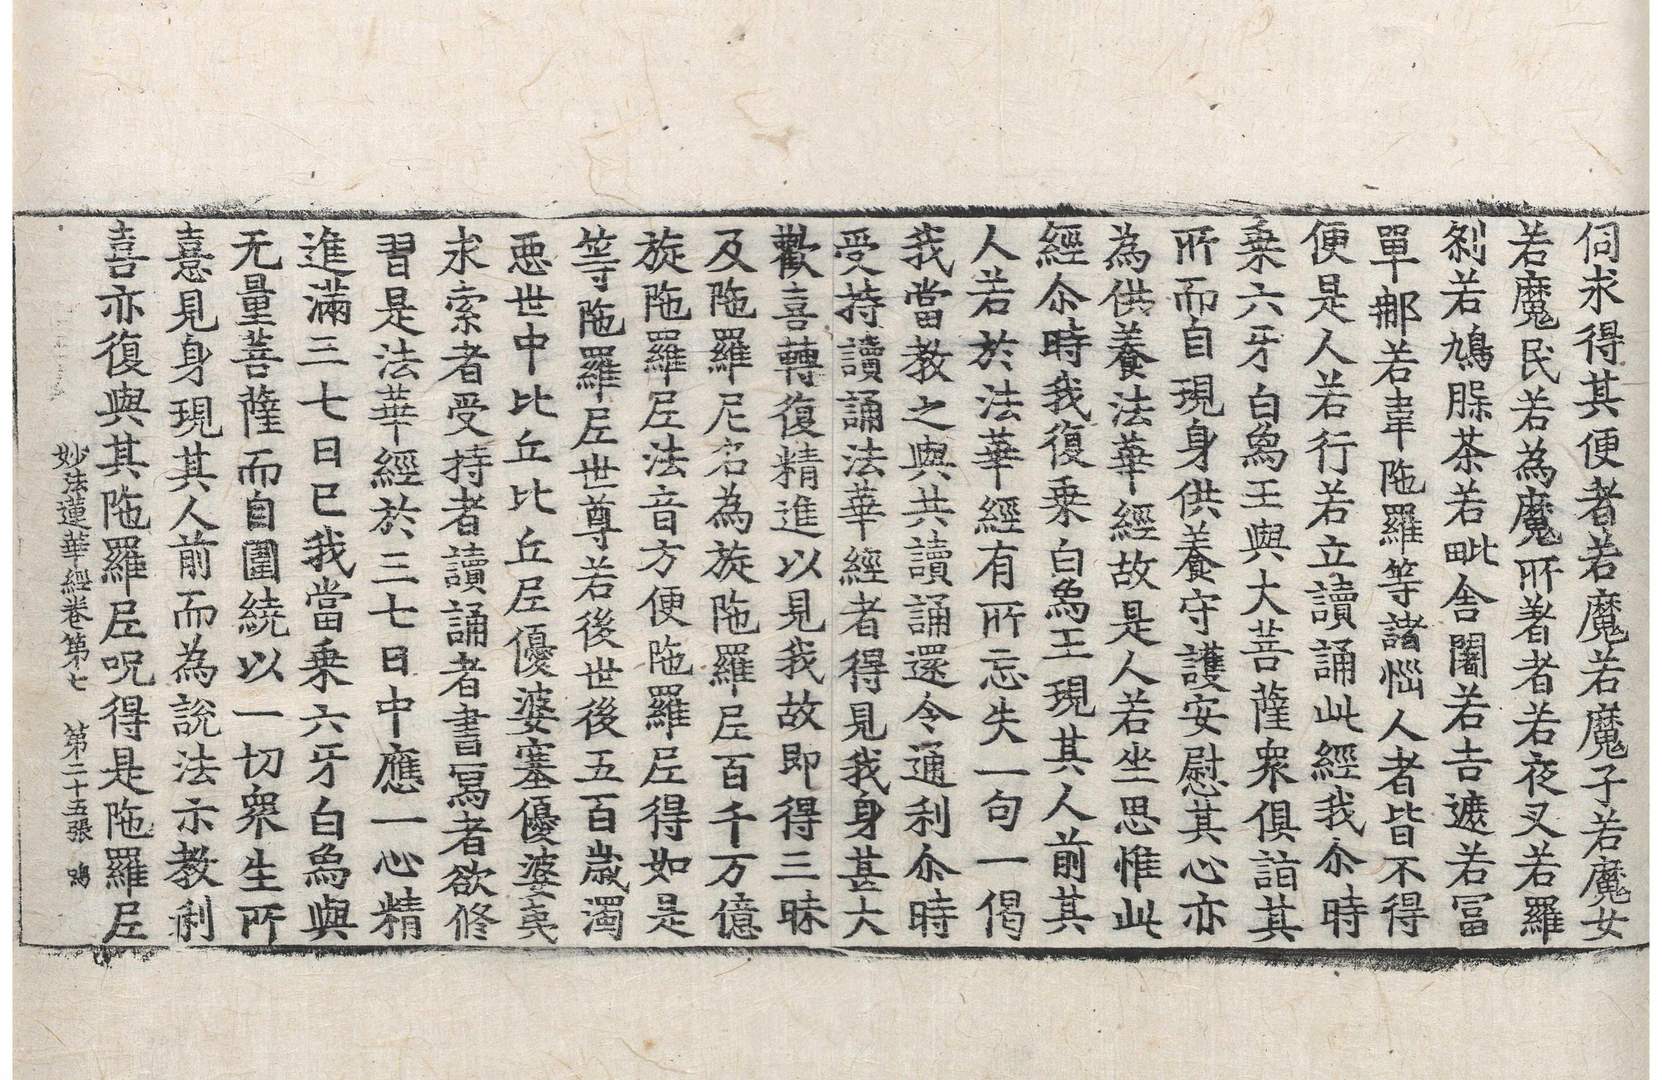 伺求得其便者若魔若魔子若魔女
若魔民若為魔所著者若夜叉若羅
刹若鳩槃茶若毗舍闍若吉遮若冨
單那若韋陁羅等諸惱人者皆不得
便是人若行若立讀誦此經我尒時
乗六牙白象王與大菩薩衆俱詣其
所而自現身供養守護安慰其心亦
為供養法華經故是人若坐思惟此
經尒時我復乗白象王現其人前其
人若於法華經有所忘失一句一偈
我當教之與共讀誦還令通利尒時
受持讀誦法華經者得見我身甚大
歡喜轉復精進以見我故即得三昧
及陁羅尼名為旋陁羅尼百千万億
旋陁羅尼法音方便陁羅尼得如是
等陁羅尼世尊若後世後五百歲濁
悪世中比丘比丘尼優婆塞優婆夷
求索者受持者讀誦者書寫者欲修
習是法華經於三七日中應一心精
進滿三七日已我當乗六牙白象與
无量菩薩而自圍繞以一切衆生所
憙見身現其人前而為說法示教利
喜亦復與其陁羅尼呪得是陁羅尼
妙法蓮華經卷第七 第二十五張